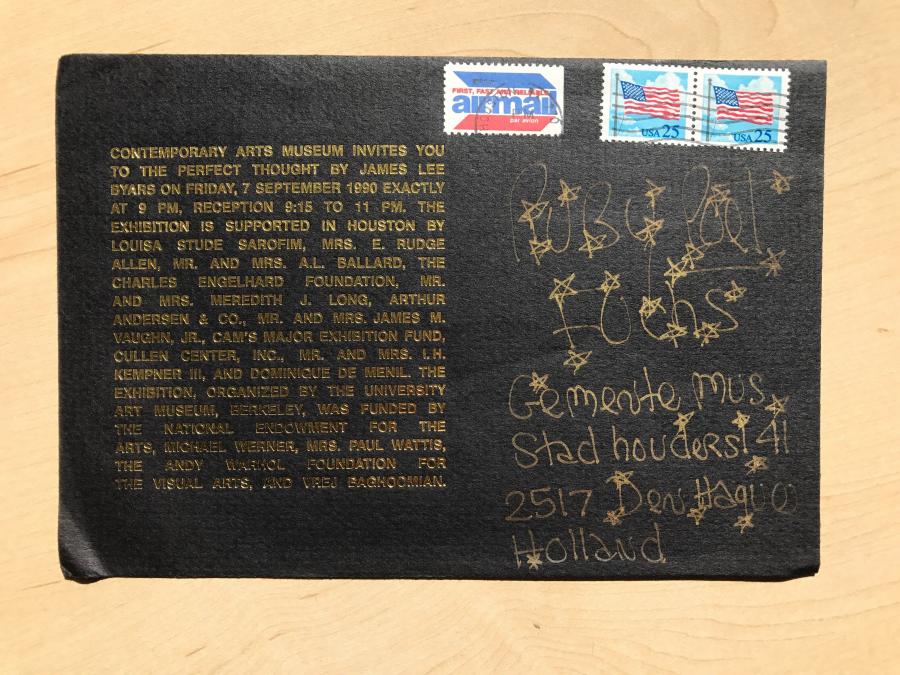 FIRST, FAST AND RELIABLE
airmail
par avion
USA 25
USA 25
CONTEMPORARY ARTS MUSEUM INVITES YOU
TO THE PERFECT THOUGHT BY JAMES LEE
BYARS ON FRIDAY, 7 SEPTEMBER 1990 EXACTLY
AT 9 PM, RECEPTION 9:15 TO 11 PM. THE
EXHIBITION IS SUPPORTED IN HOUSTON BY
LOUISA STUDE SAROFIM, MRS. E. RUDGE
ALLEN, MR. AND MRS. A.L. BALLARD, THE
CHARLES ENGELHARD FOUNDATION, MR.
AND MRS. MEREDITH J. LONG, ARTHUR
ANDERSEN & CO., MR. AND MRS. JAMES M.
VAUGHN, JR., CAM'S MAJOR EXHIBITION FUND,
CULLEN CENTER, INC., MR. AND MRS. I.H.
KEMPNER III, AND DOMINIQUE DE MENIL. THE
EXHIBITION, ORGANIZED BY THE UNIVERSITY
ART MUSEUM, BERKELEY, WAS FUNDED BY
THE NATIONAL ENDOWMENT FOR THE
ARTS, MICHAEL WERNER, MRS. PAUL WATTIS,
THE ANDY WARHOL FOUNDATION FOR
THE VISUAL ARTS, AND VREJ BAGHOOMIAN.
Fuchs
Gemente Mus
Stadhouderst 41
2517 Den Haque
Holland